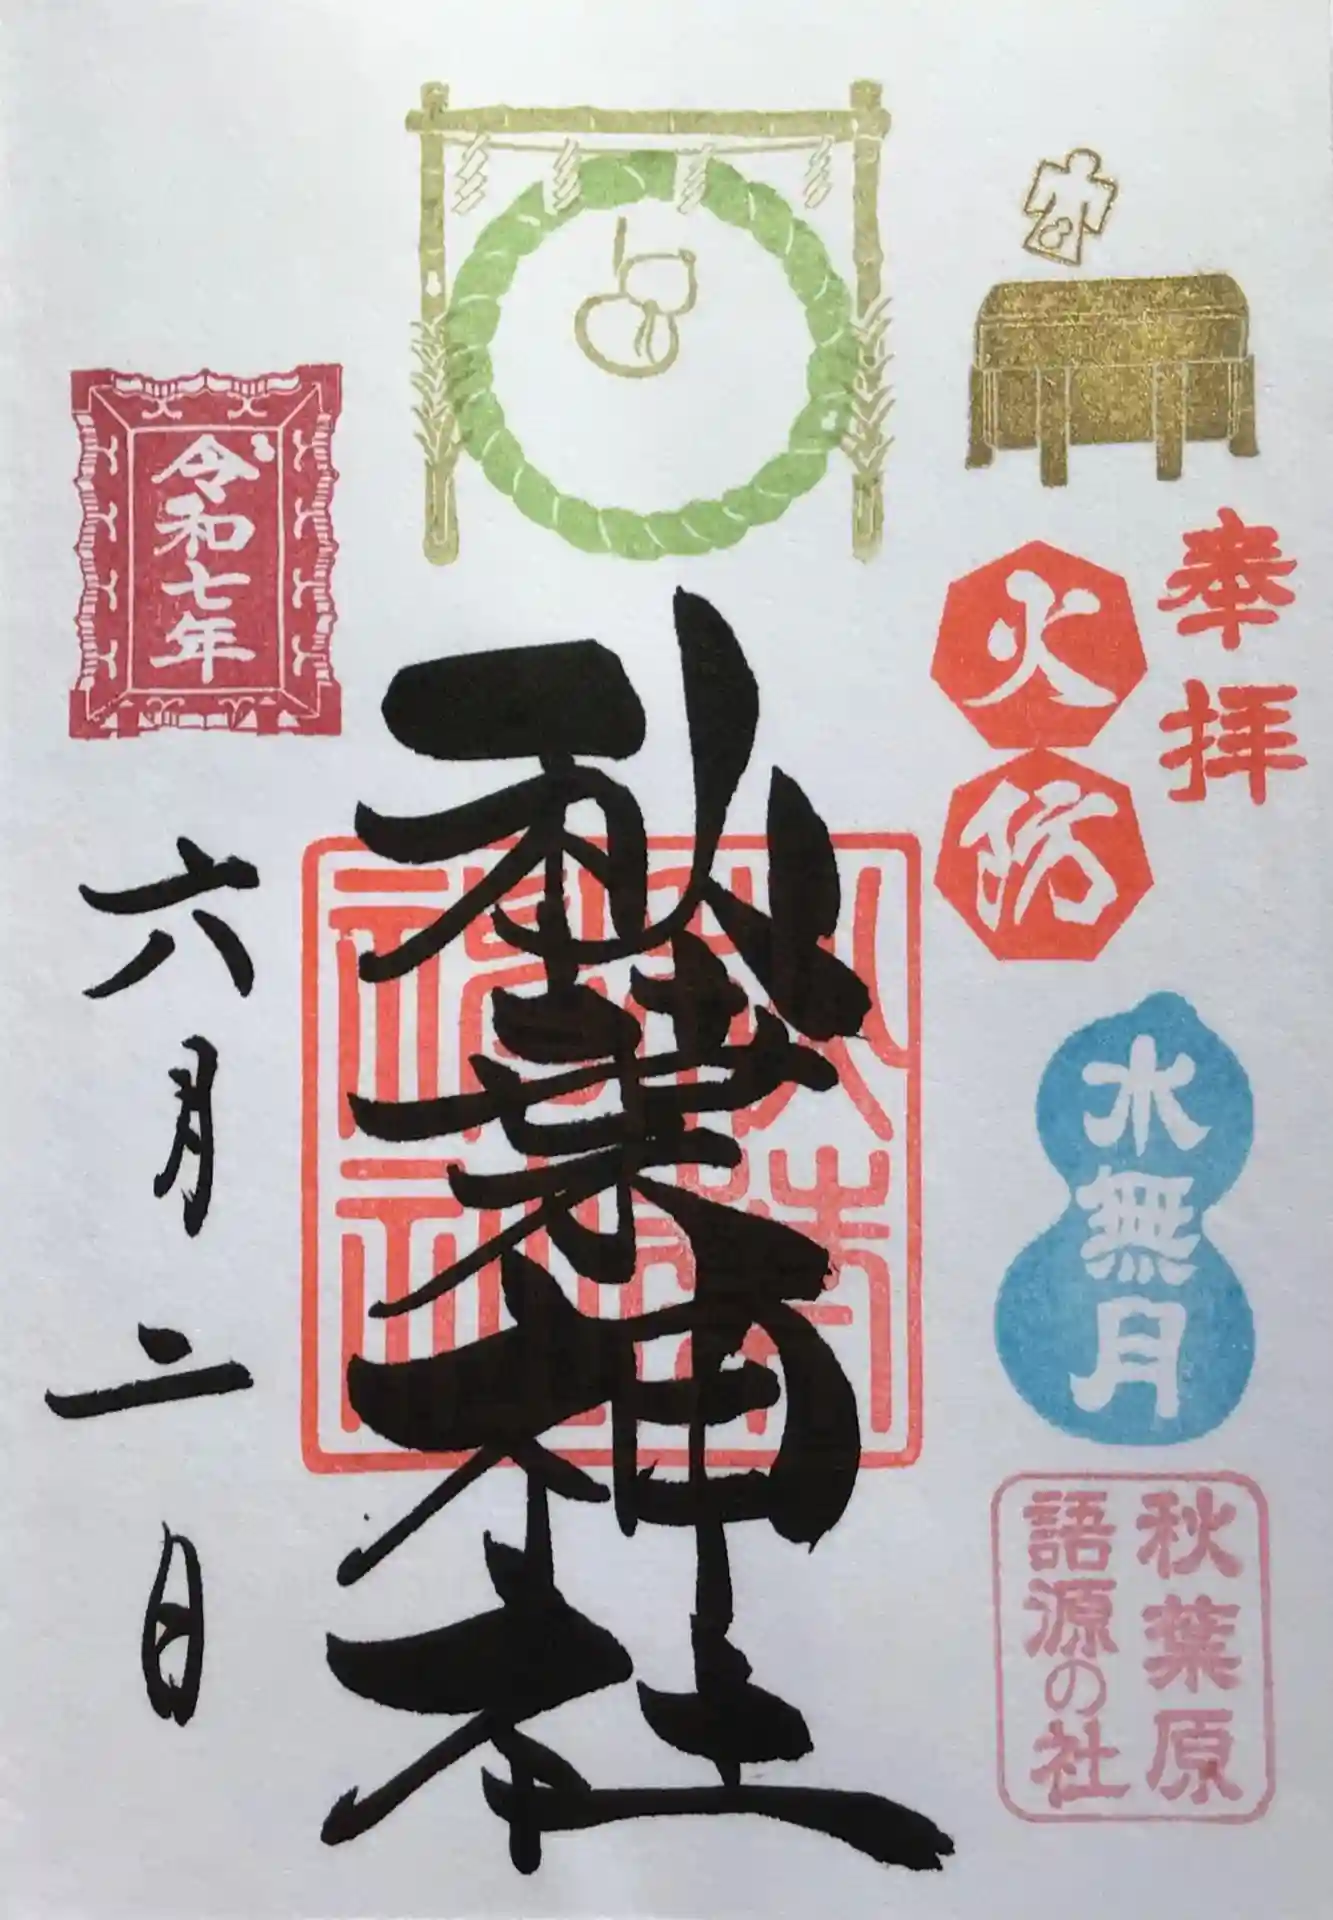 奉拝
火防
水無月
秋葉原
語源の社
秋葉神社
秋葉神社
令和七年
六月二日